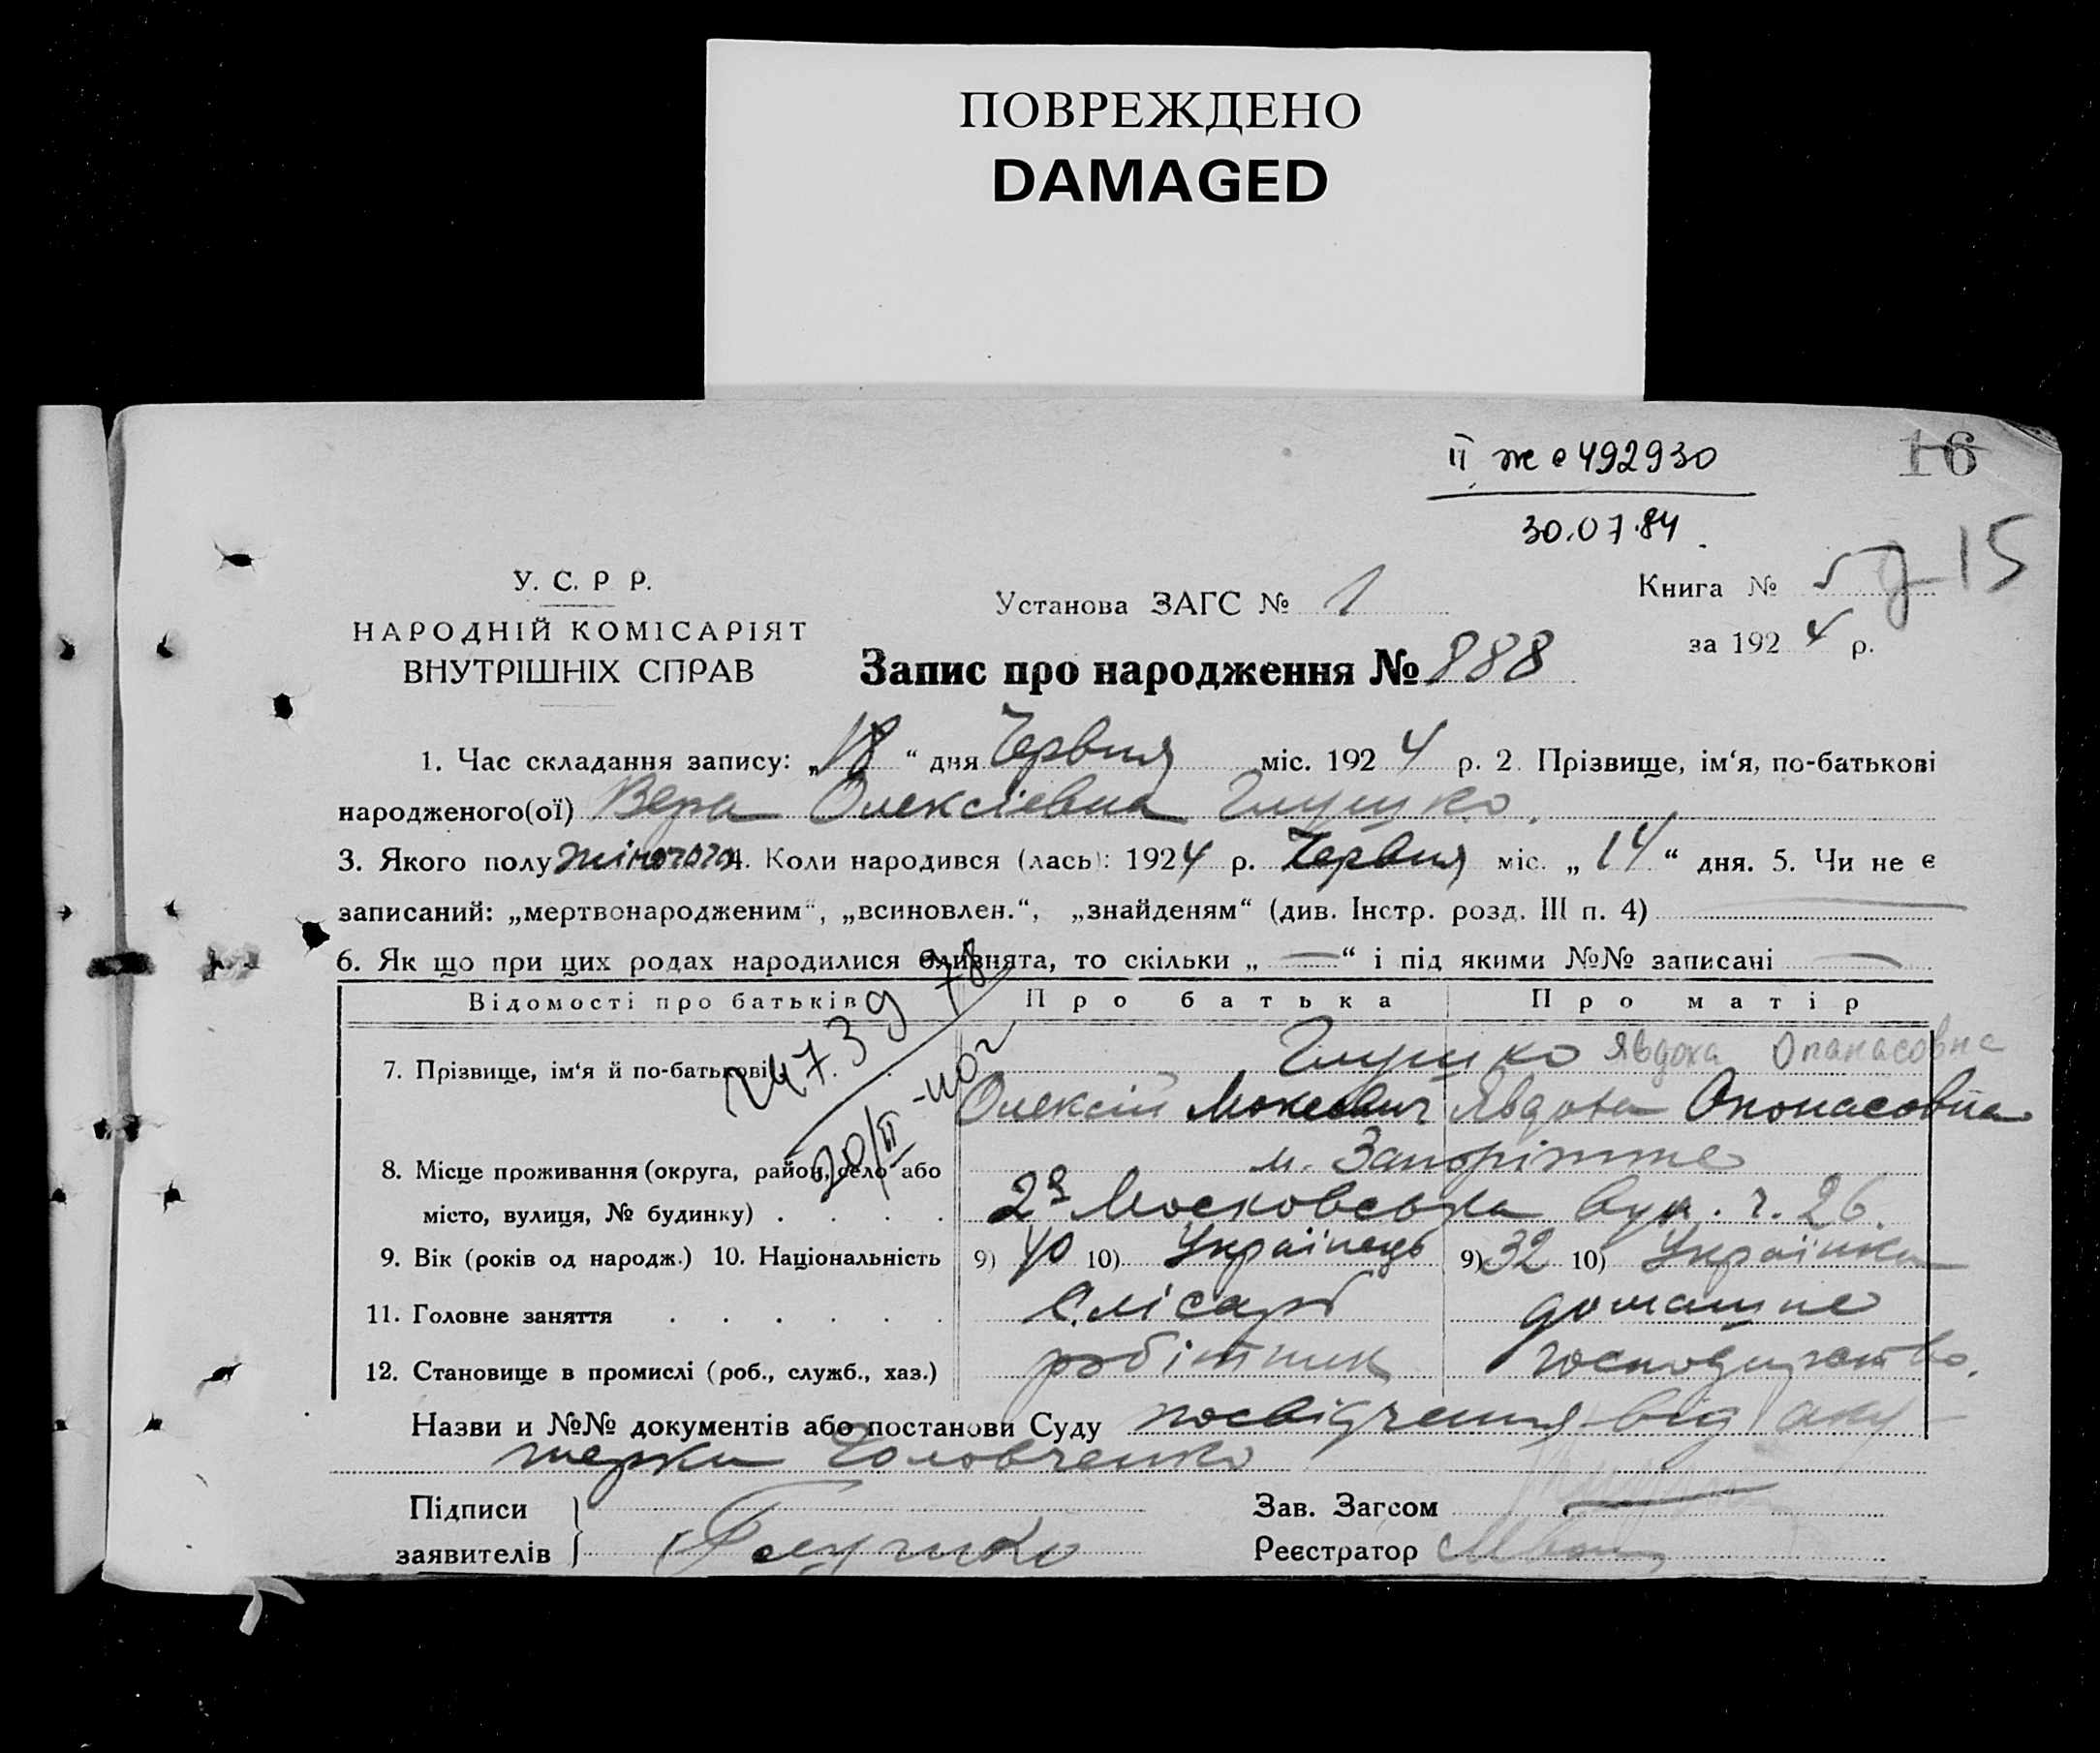 ПОВРЕЖДЕНО
DAMAGED
ІІ же 492930
30.07.84.
16
15
У. С. Р Р.
НАРОДНІЙ КОМІСАРІЯТ
ВНУТРІШНІХ СПРАВ
Установа ЗАГС № 1
Книга № 5
за 1924 р.
Запис про народження № 888
1. Час складання запису: „18“ дня Червня міс. 1924 р. 2. Прізвище, ім‘я, по-батькові
народженого(ої) Вера Олексіевна Глушко.
3. Якого полу жіночого 4. Коли народився (лась): 1924 р. Червня міс. „14“ дня. 5. Чи не є
записаний: „мертвонародженим“, „всиновлен.“, „знайденям“ (див. Інстр. розд. III п. 4)
6. Як що при цих родах народилися близнята, то скільки „—“ і під якими №№ записані —
Відомості про батьків Про батька Про матір
7. Прізвище, ім‘я й по-батькові Глушко Явдоха Опанасовна
Олексій Мокеович Явдоха Опонасовна
8. Місце проживання (округа, район, село або м. Запоріжже
місто, вулиця, № будинку) 2а Московська вул. ч. 26.
9. Вік (років од народж.) 10. Національність 9) 40 10) Українець 9) 32 10) Українка
11. Головне заняття Слісарь домашне
12. Становище в промислі (роб., служб., хаз.) робітник господарство.
Назви и №№ документів або постанови Суду посвідчення від аку
шерки Головченко
Підписи
заявителів Глушко
Зав. Загсом
Реєстратор